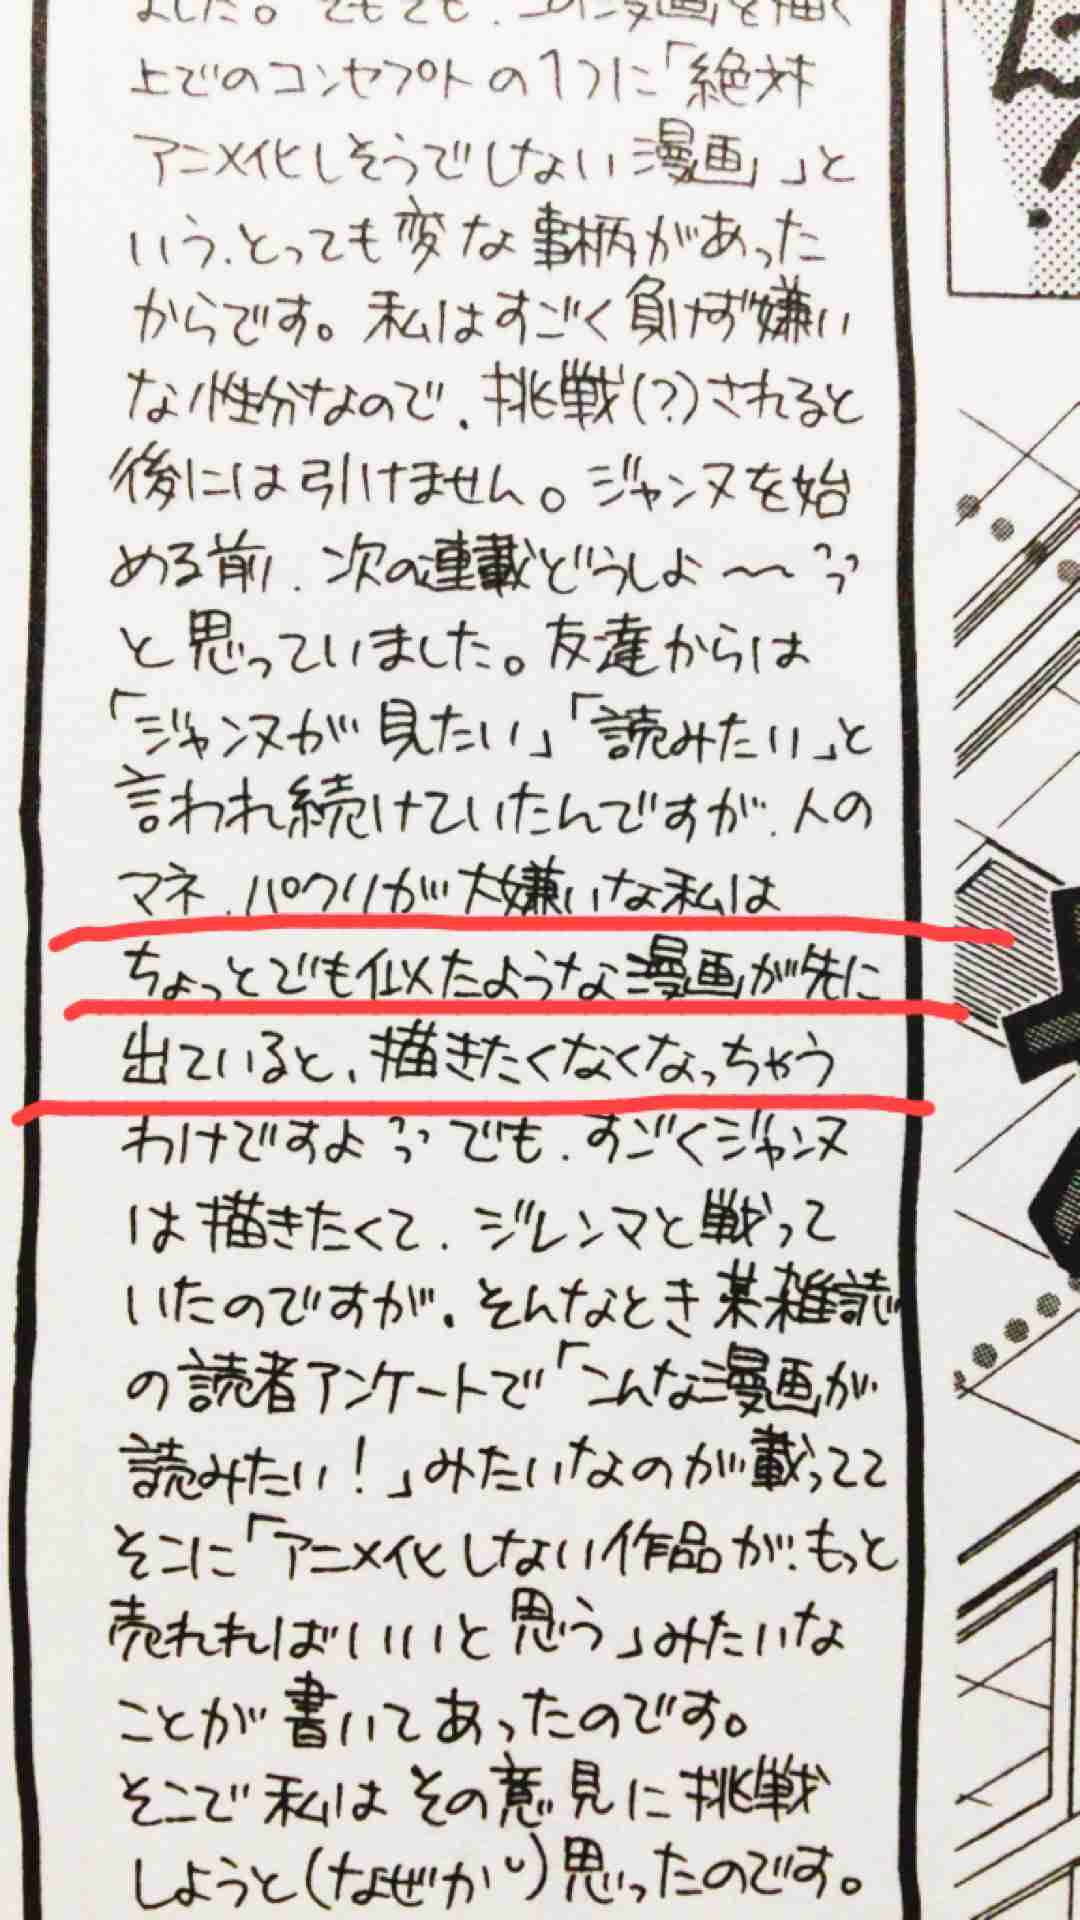 ました。でもでも、この漫画を描く
上でのコンセプトの1つに「絶対
アニメ化しそうでしない漫画」」と
いう、とっても変な事柄があった
からです。私はすごく負けず嫌い
な性分なので、挑戦(?)されると
後には引けません。ジャンヌを始
める前、次の連載どうしよ〜〜
と思っていました。友達からは
「ジャンヌが見たい」「読みたい」と
言われ続けていたんですが、人の
マネ、パクリが大嫌いな私は
ちょっとでも似たような漫画が先に
出ていると、描きたくなくなっちゃう
わけですよ でも、すごくジャンヌ
は描きたくて、ジレンマと戦って
いたのですが、そんなとき某雑誌
の読者アンケートで「こんな漫画が
読みたい!」みたいなのが載ってて
そこに「アニメ化しない作品が、もっと
売れればいいと思う」みたいな
ことが書いてあったのです。
そこで私はその意見に挑戦
しようと(なぜか)思ったのです。